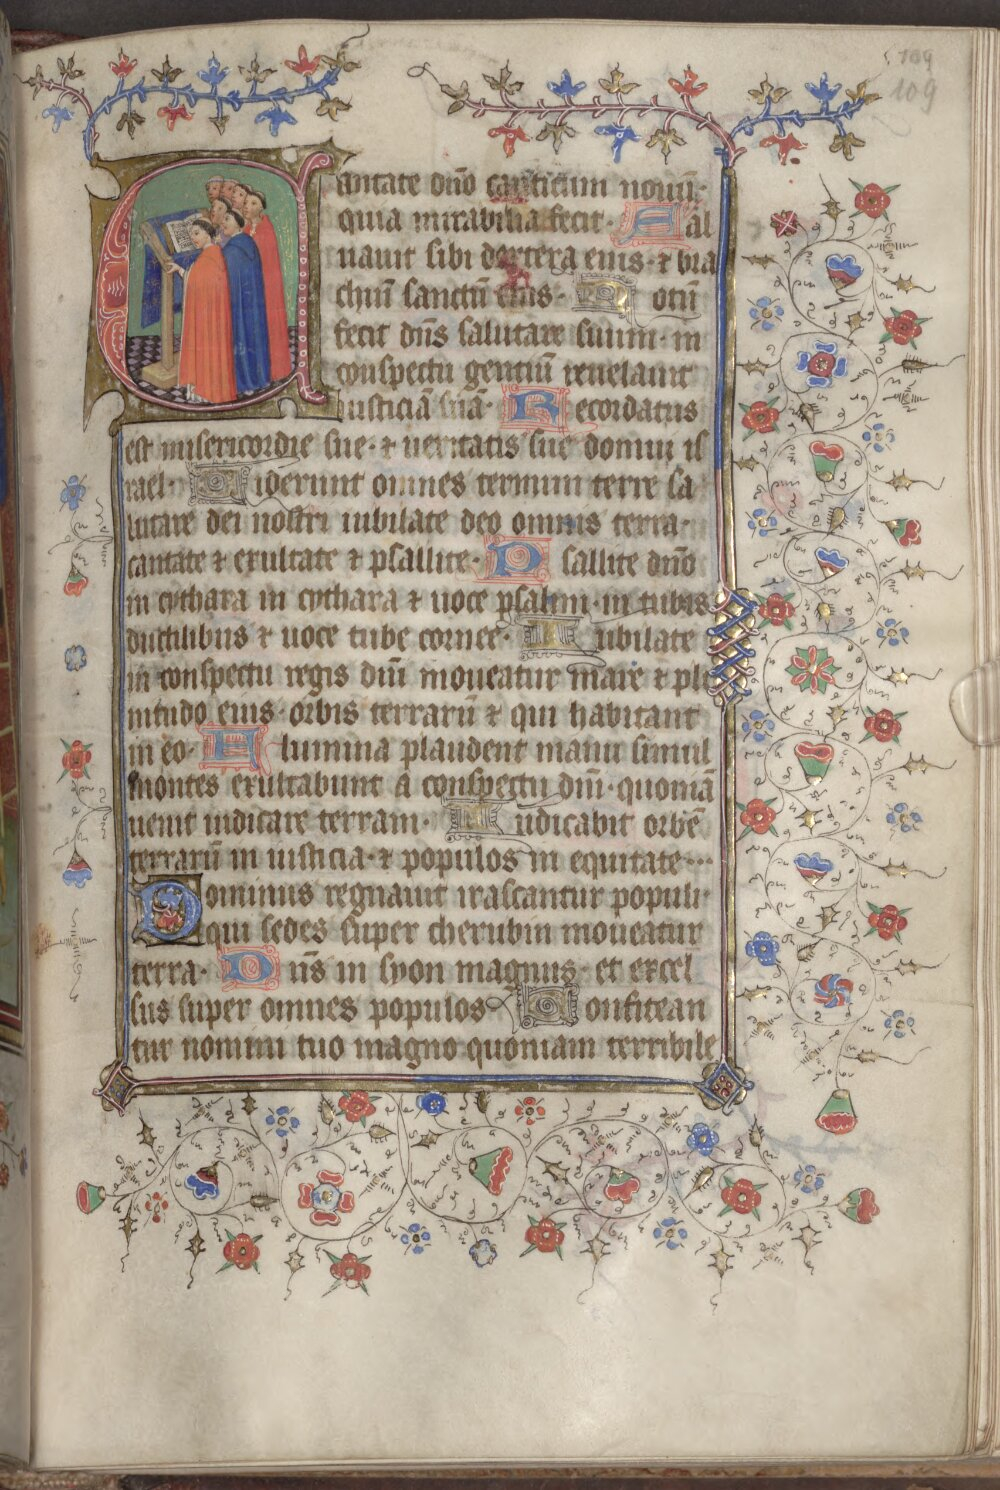 109
109
Cantate dño canticum nouū·
quia mirabilia fecit· Sal
uauit sibi dextera eius· ⁊ bra
chiū sanctū eius· Notū
fecit dñs salutare suum· in
conspectu gentiū reuelauit
iusticiā suā· Recordatus
est misericordie sue· ⁊ ueritatis sue domui is
rael· Uiderunt omnes termini terre sa
lutare dei nostri iubilate deo omnis terra·
cantate ⁊ exultate ⁊ psallite· Psallite dño
in cythara in cythara ⁊ uoce psalmi· in tubis
ductilibus ⁊ uoce tube cornee· Iubilate
in conspectu regis dñi moueatur mare ⁊ ple
nitudo eius· orbis terrarū ⁊ qui habitant
in eo· Flumina plaudent manu simul
montes exultabunt a conspectu dñi· quoniā
uenit iudicare terram· Iudicabit orbē
terrarū in iusticia· ⁊ populos in equitate···
Dominus regnauit irascantur populi·
qui sedes super cherubin moueatur
terra· Dñs in syon magnus· et excel
sus super omnes populos· Confitean
tur nomini tuo magno quoniam terribile